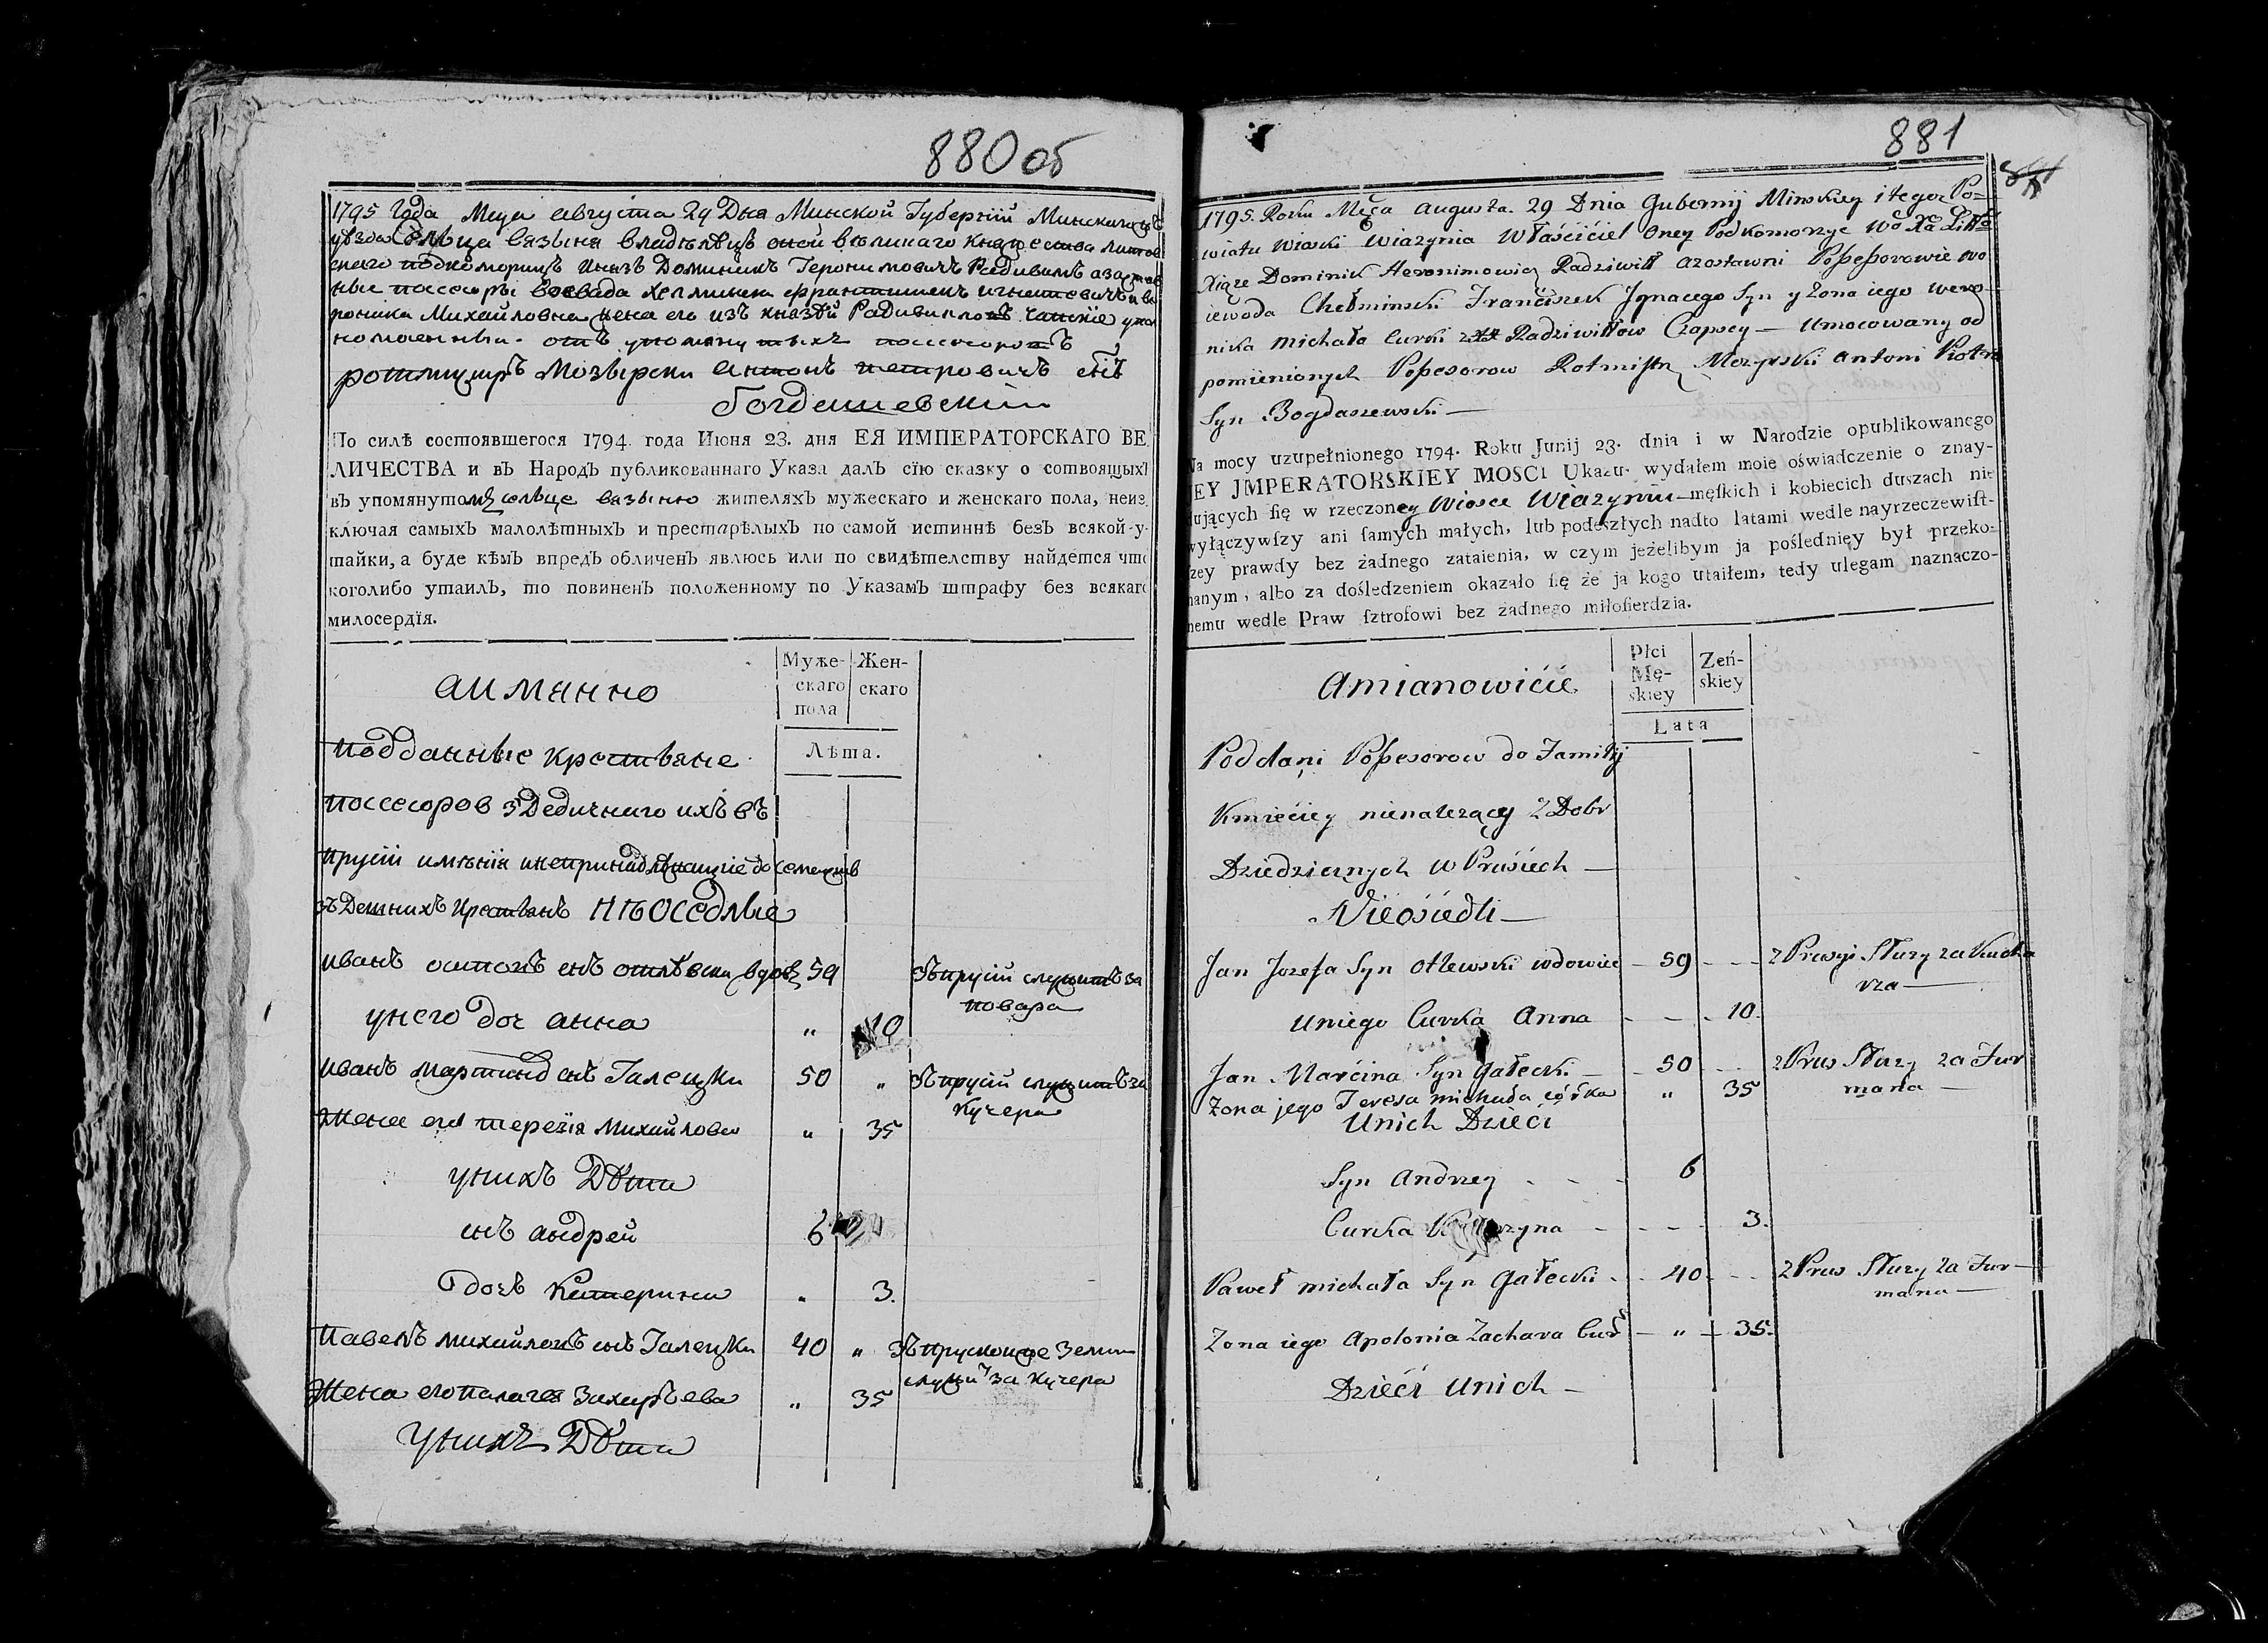 880об
1795 Года Мца августа 29 Дня Минской Губернии Минскаго
уѣзда Сельца Вязыня владѣлецъ оной великаго княжества литов
скаго подкоморицъ Князь Доминикъ Геронимовичъ Радивилъ а застав
ные поссесоры воевода хелмински францишекъ игнатевичъ и ве
роника Михайловна жена его изъ князей Радивилловъ Чапские упол
номоченный отъ упомянутыхъ поссесоровъ
ротмистръ Мозырски Антонъ петровичъ снъ
Богдашевский
По силѣ состоявшегося 1794. года Июня 23. дня ЕЯ ИМПЕРАТОРСКАГО ВЕ
ЛИЧЕСТВА и въ Народъ публикованнаго Указа далъ сїю сказку о состоящихъ
въ упомянутомъ сельце вязыню жителяхъ мужескаго и женскаго пола, неиз
ключая самыхъ малолѣтныхъ и престарѣлыхъ по самой истиннѣ безъ всякой у-
тайки, а буде кѣмъ впредъ обличенъ явлюсь или по свидѣтелству найдется что
коголибо утаилъ, то повиненъ положенному по Указамъ штрафу без всякаго
милосердїя.
аимянно
Муже-
скаго
пола
Жен-
скаго
Лѣта.
Подданные крестьяне
поссесоров з Дедичнаго ихъ въ
Прусіи имѣнія инепринадлежащіе до семействъ
здешнихъ крестьянъ нѣоседлые
Иванъ осиповъ снъ отлѣвски вдовъ 59 зъ прусіи служитъ за
повара
унего доч анна " 10
Иванъ мартинов снъ Галецки 50 " зъ прусіи служитъ за
кучера
Жена его терезія Михайлова " 35
унихъ Дѣти
снъ андрей 6
дочь Катерина " 3.
Павелъ михайловъ снъ Галецки 40 " зъ пруской Земли
служитъ за кучера
Жена его палагея Захарьева " 35
Унихъ Дѣти
881
1795. Roku Męca Augusta. 29 Dnia Gubernij Minskiey i tegoż Po=
wiatu Wioski Wiazynia Właściciel Oney Podkomorzyc Wo Xa Litto
Xiąże Dominik Heronimowicz Radziwiłł a zostawni Possessorowie wo
iewoda Chełminski Franciszek Jgnacego Syn y Żona iego Wero
nika Michała Curki z Xx Radziwiłłow Czapscy — Umocowany od
pomienionych Possesorow Rotmistrz Mozyrski Antoni Piotra
Syn Bogdaszewski —
Na mocy uzupełnionego 1794. Roku Junij 23. dnia i w Narodzie opublikowanego
JEY JMPERATORSKIEY MOSCI Ukazu wydałem moie oświadczenie o znay-
dujących się w rzeczoney Wiosce Wiazyniu męskich i kobiecich duszach nie
wyłączywszy ani samych małych, lub podeszłych nadto latami wedle nayrzeczewist-
szey prawdy bez żadnego zataienia, w czym jeżelibym ja poślednięy był przeko-
nanym, albo za dośledzeniem okazało się że ja kogo utaiłem, tedy ulegam naznaczo-
nemu wedle Praw sztrofowi bez żadnego miłosierdzia.
Amianowićie
Płci
Mę-
skiey
Żeń-
skiey
Lata
Poddani Possesorow do Familij
Kmiećiey nienależący z Dobr
Dziedzicznych w Prusiech —
Nieosiedli —
Jan Jozefa Syn Otlewski wdowiec – 59 – – – z Prusyi Służy za Kucha
rza —
Uniego Curka Anna – – – 10.
Jan Marćina Syn Gałecki – 50 – – z Prus Służy za Fur
mana —
Żona jego Teresa michała córka " 35
Unich Dzieci
Syn Andrzey – – – 6
Curka Katarzyna – – – – 3.
Paweł michała Syn Gałecki – – 40 – – – z Prus Służy za Fur–
mana —
Żona iego Apolonia Zachara Cur – " – 35.
Dzieći Unich –